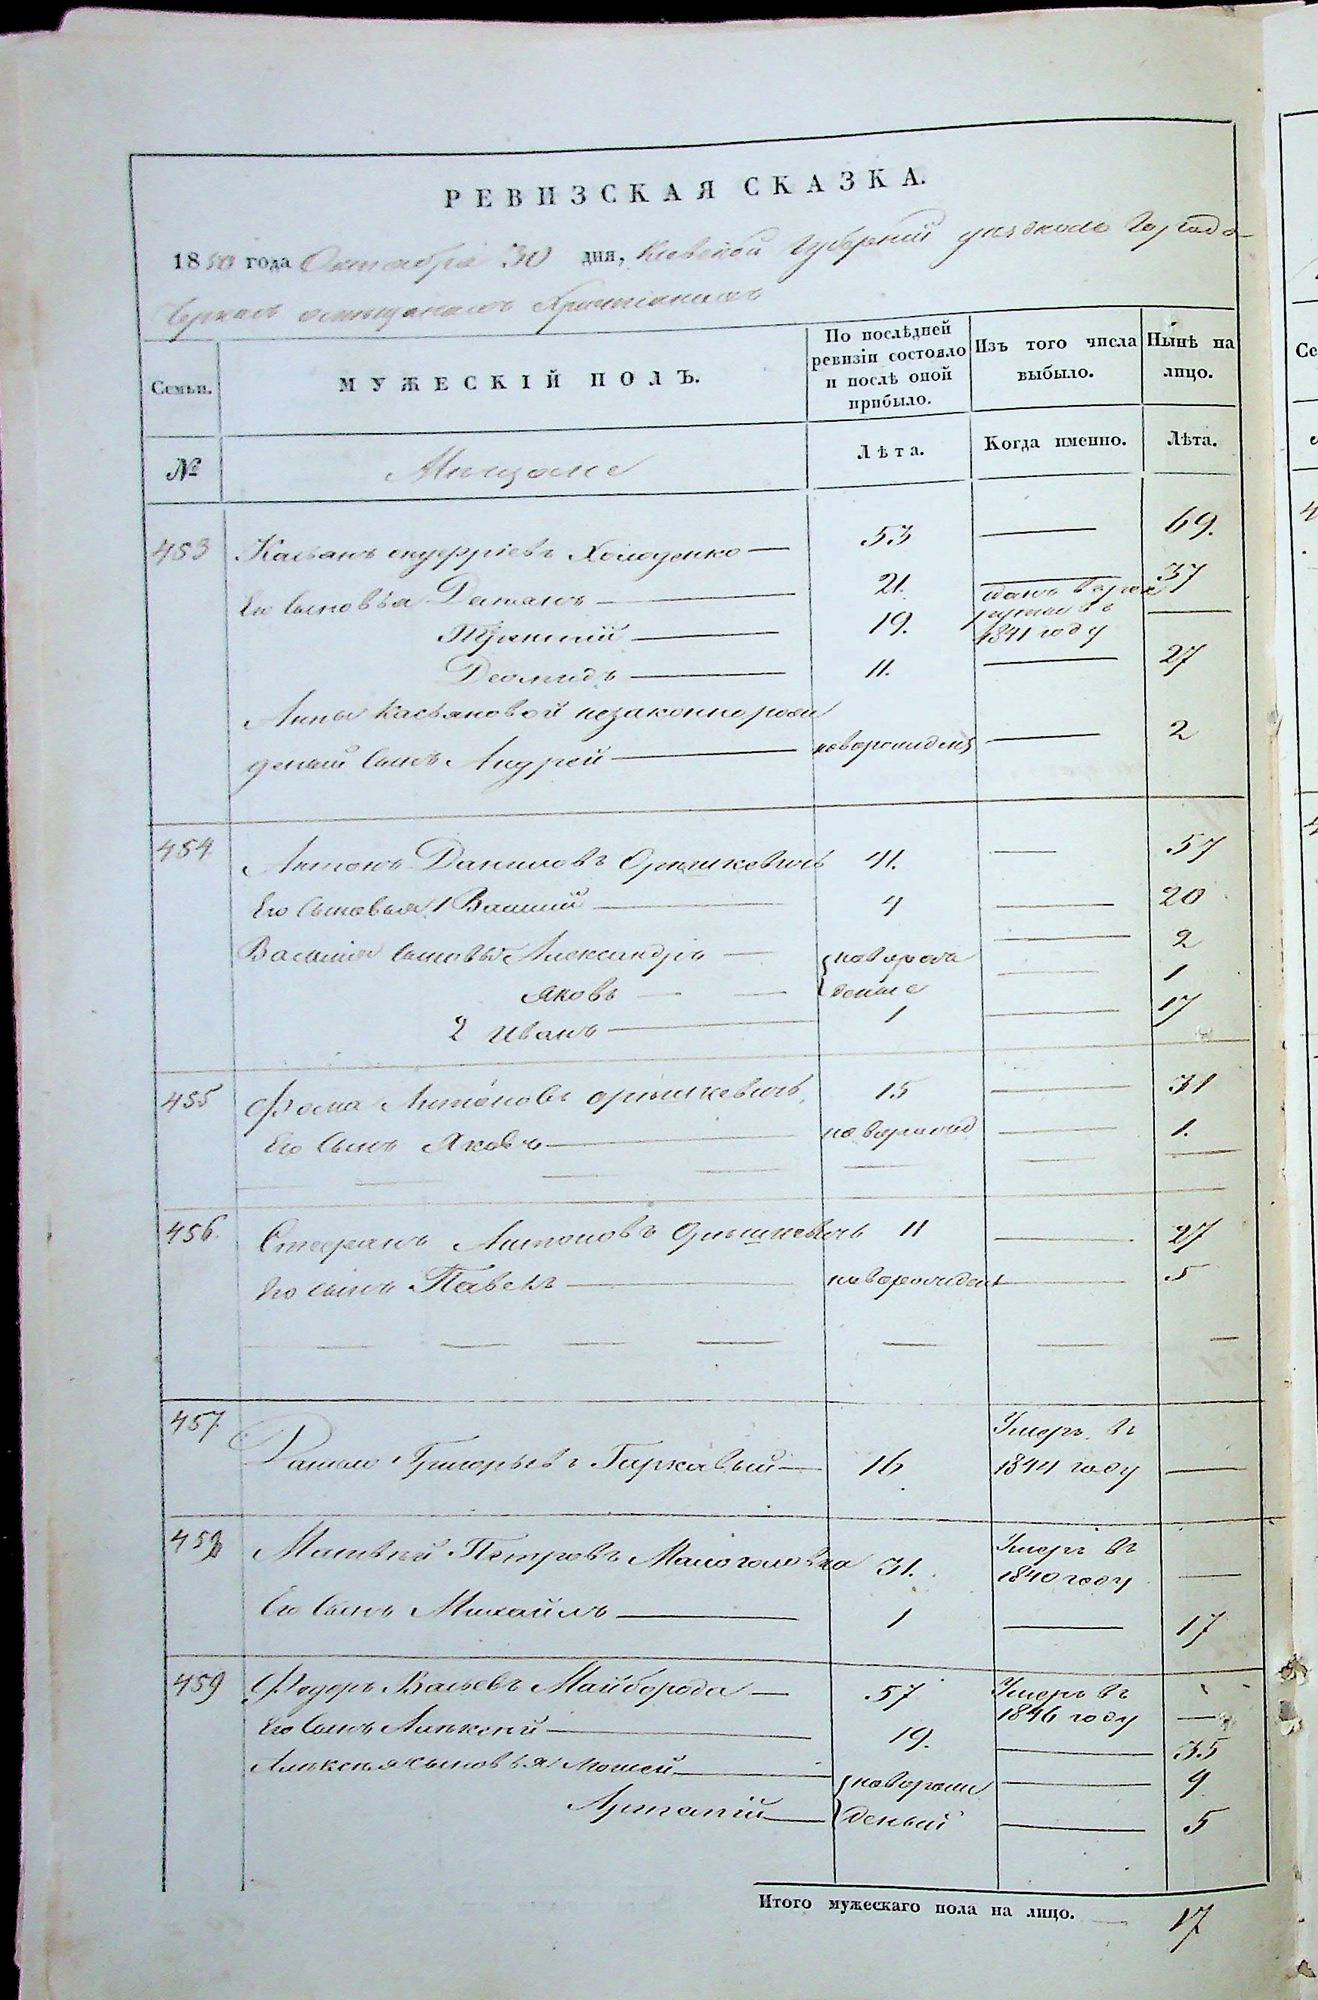 РЕВИЗСКАЯ СКАЗКА.
1850 года Октября 30 дня, Киевской Губернии уезднаго Города
Черкас о мещанах Христианах
Семьи. МУЖЕСКІЙ ПОЛЪ. По послѣдней ревизіи состояло и послѣ оной прибыло. Изъ того числа выбыло. Нынѣ на лицо.
№ Мещане Лѣта. Когда именно. Лѣта.
453 Касьянъ Онуфріевъ Холоденко 53 69.
Его Сыновья Демьянъ 21. 37
19. 1841 году
Деомидъ 11. 27
Анны Касьяновой незаконнорож
деный Сынъ Андрей новорожденъ 2
454 Антонъ Даниловъ Орышкевичь 41. 57
Его Сыновья 1 Василий 4 20
Василия Сыновья Александръ новорож 2
Яковъ деные 1
2 Иванъ 1 17
455 Фома Антоновъ Орышкевичь 15 31
Его Сынъ Яковъ новорожд 1.
456. Стефанъ Антоновъ Орышкевичь 11 27
Его Сынъ Павелъ новорожденъ 5
457 Данило Григорьевъ Гаркавый 16 Умеръ въ 1844 году
458 Матвѣй Петровъ Малоголовка 31. Умеръ въ 1840 году
Его Сынъ Михайлъ 1 17
459 Федоръ Васьевъ Майборода 57 Умеръ въ 1846 году
Его Сынъ Алексей 19. 35
Алексея Сыновья Мосей новорож 9
Артемій деный 5
Итого мужескаго пола на лицо. 17